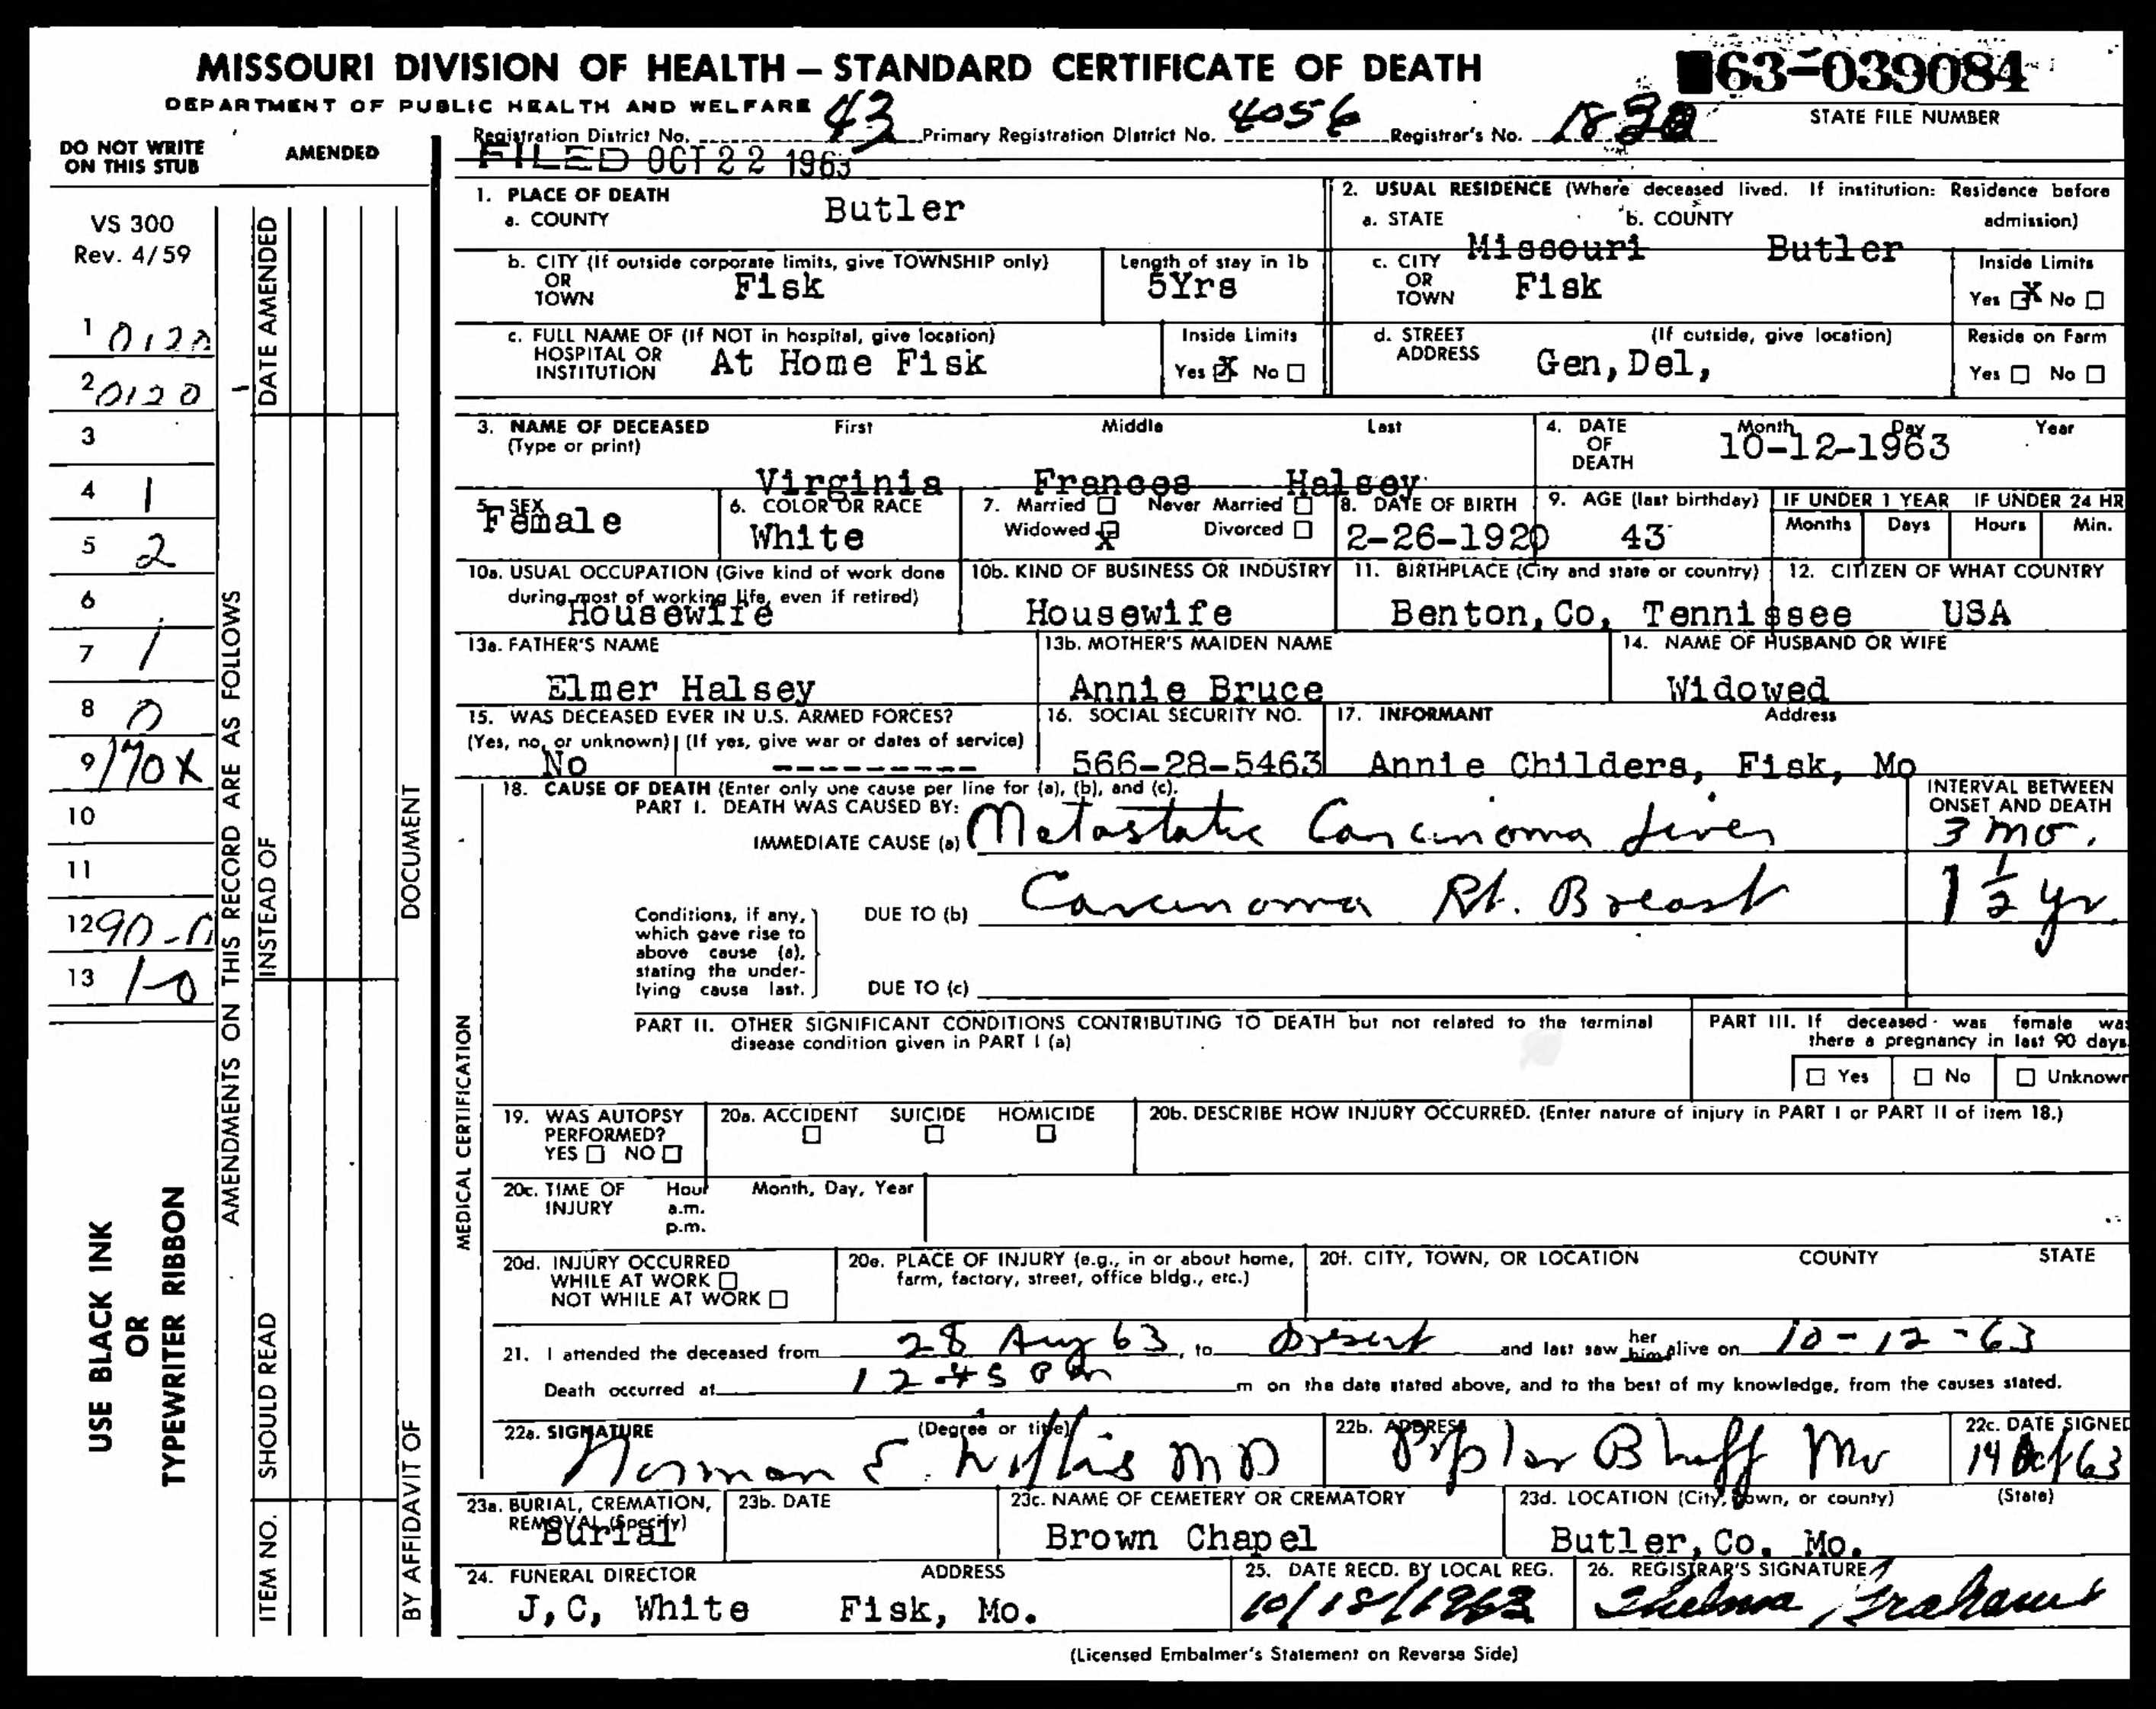 MISSOURI DIVISION OF HEALTH — STANDARD CERTIFICATE OF DEATH
63-039084
DEPARTMENT OF PUBLIC HEALTH AND WELFARE
STATE FILE NUMBER
Registration District No. 43 Primary Registration District No. 4056 Registrar's No.
FILED OCT 22 1963
DO NOT WRITE
ON THIS STUB
AMENDED
VS 300
Rev. 4/59
1 0120
2 0120
3
4 1
5 2
6
7 1
8 0
9 170X
10
11
12 90-0
13 1-0
USE BLACK INK
OR
TYPEWRITER RIBBON
AMENDMENTS ON THIS RECORD ARE AS FOLLOWS
DATE AMENDED
INSTEAD OF
SHOULD READ
ITEM NO.
DOCUMENT
BY AFFIDAVIT OF
1. PLACE OF DEATH
a. COUNTY Butler
2. USUAL RESIDENCE (Where deceased lived. If institution: Residence before
admission)
a. STATE Missouri b. COUNTY Butler
b. CITY (If outside corporate limits, give TOWNSHIP only)
OR
TOWN Fisk
Length of stay in 1b
5Yrs
c. CITY
OR
TOWN Fisk
Inside Limits
Yes X No
c. FULL NAME OF (If NOT in hospital, give location)
HOSPITAL OR
INSTITUTION At Home Fisk
Inside Limits
Yes X No
d. STREET
ADDRESS (If outside, give location)
Gen,Del,
Reside on Farm
Yes No
3. NAME OF DECEASED
(Type or print)
First Middle Last
Virginia Frances Halsey
4. DATE
OF
DEATH
Month Day Year
10-12-1963
5. SEX
Female
6. COLOR OR RACE
White
7. Married Never Married
Widowed X Divorced
8. DATE OF BIRTH
2-26-1920
9. AGE (last birthday)
43
IF UNDER 1 YEAR
Months Days
IF UNDER 24 HR
Hours Min.
10a. USUAL OCCUPATION (Give kind of work done
during most of working life, even if retired)
Housewife
10b. KIND OF BUSINESS OR INDUSTRY
Housewife
11. BIRTHPLACE (City and state or country)
Benton,Co, Tennissee
12. CITIZEN OF WHAT COUNTRY
USA
13a. FATHER'S NAME
Elmer Halsey
13b. MOTHER'S MAIDEN NAME
Annie Bruce
14. NAME OF HUSBAND OR WIFE
Widowed
15. WAS DECEASED EVER IN U.S. ARMED FORCES?
(Yes, no, or unknown) (If yes, give war or dates of service)
No ---------
16. SOCIAL SECURITY NO.
566-28-5463
17. INFORMANT Address
Annie Childers, Fisk, Mo
MEDICAL CERTIFICATION
18. CAUSE OF DEATH (Enter only one cause per line for (a), (b), and (c).
PART I. DEATH WAS CAUSED BY:
INTERVAL BETWEEN
ONSET AND DEATH
IMMEDIATE CAUSE (a) Metastatic Carcinoma Liver 3 mo.
Conditions, if any,
which gave rise to
above cause (a),
stating the under-
lying cause last.
DUE TO (b) Carcinoma Rt. Breast 1 1/2 yr.
DUE TO (c)
PART II. OTHER SIGNIFICANT CONDITIONS CONTRIBUTING TO DEATH but not related to the terminal
disease condition given in PART I (a)
PART III. If deceased was female was
there a pregnancy in last 90 days
Yes No Unknown
19. WAS AUTOPSY
PERFORMED?
YES NO
20a. ACCIDENT SUICIDE HOMICIDE
20b. DESCRIBE HOW INJURY OCCURRED. (Enter nature of injury in PART I or PART II of item 18.)
20c. TIME OF
INJURY
Hour
a.m.
p.m.
Month, Day, Year
20d. INJURY OCCURRED
WHILE AT WORK
NOT WHILE AT WORK
20e. PLACE OF INJURY (e.g., in or about home,
farm, factory, street, office bldg., etc.)
20f. CITY, TOWN, OR LOCATION COUNTY STATE
21. I attended the deceased from 28 Aug 63, to present and last saw her him alive on 10-12-63
Death occurred at 12:45 pm m on the date stated above, and to the best of my knowledge, from the causes stated.
22a. SIGNATURE (Degree or title)
Norman E. MD
22b. ADDRESS
Poplar Bluff Mo
22c. DATE SIGNED
14 Oct 63
23a. BURIAL, CREMATION,
REMOVAL (Specify)
Burial
23b. DATE
23c. NAME OF CEMETERY OR CREMATORY
Brown Chapel
23d. LOCATION (City, town, or county) (State)
Butler,Co. Mo.
24. FUNERAL DIRECTOR ADDRESS
J,C, White Fisk, Mo.
25. DATE RECD. BY LOCAL REG.
10/18/1963
26. REGISTRAR'S SIGNATURE
Thelma Graham
(Licensed Embalmer's Statement on Reverse Side)